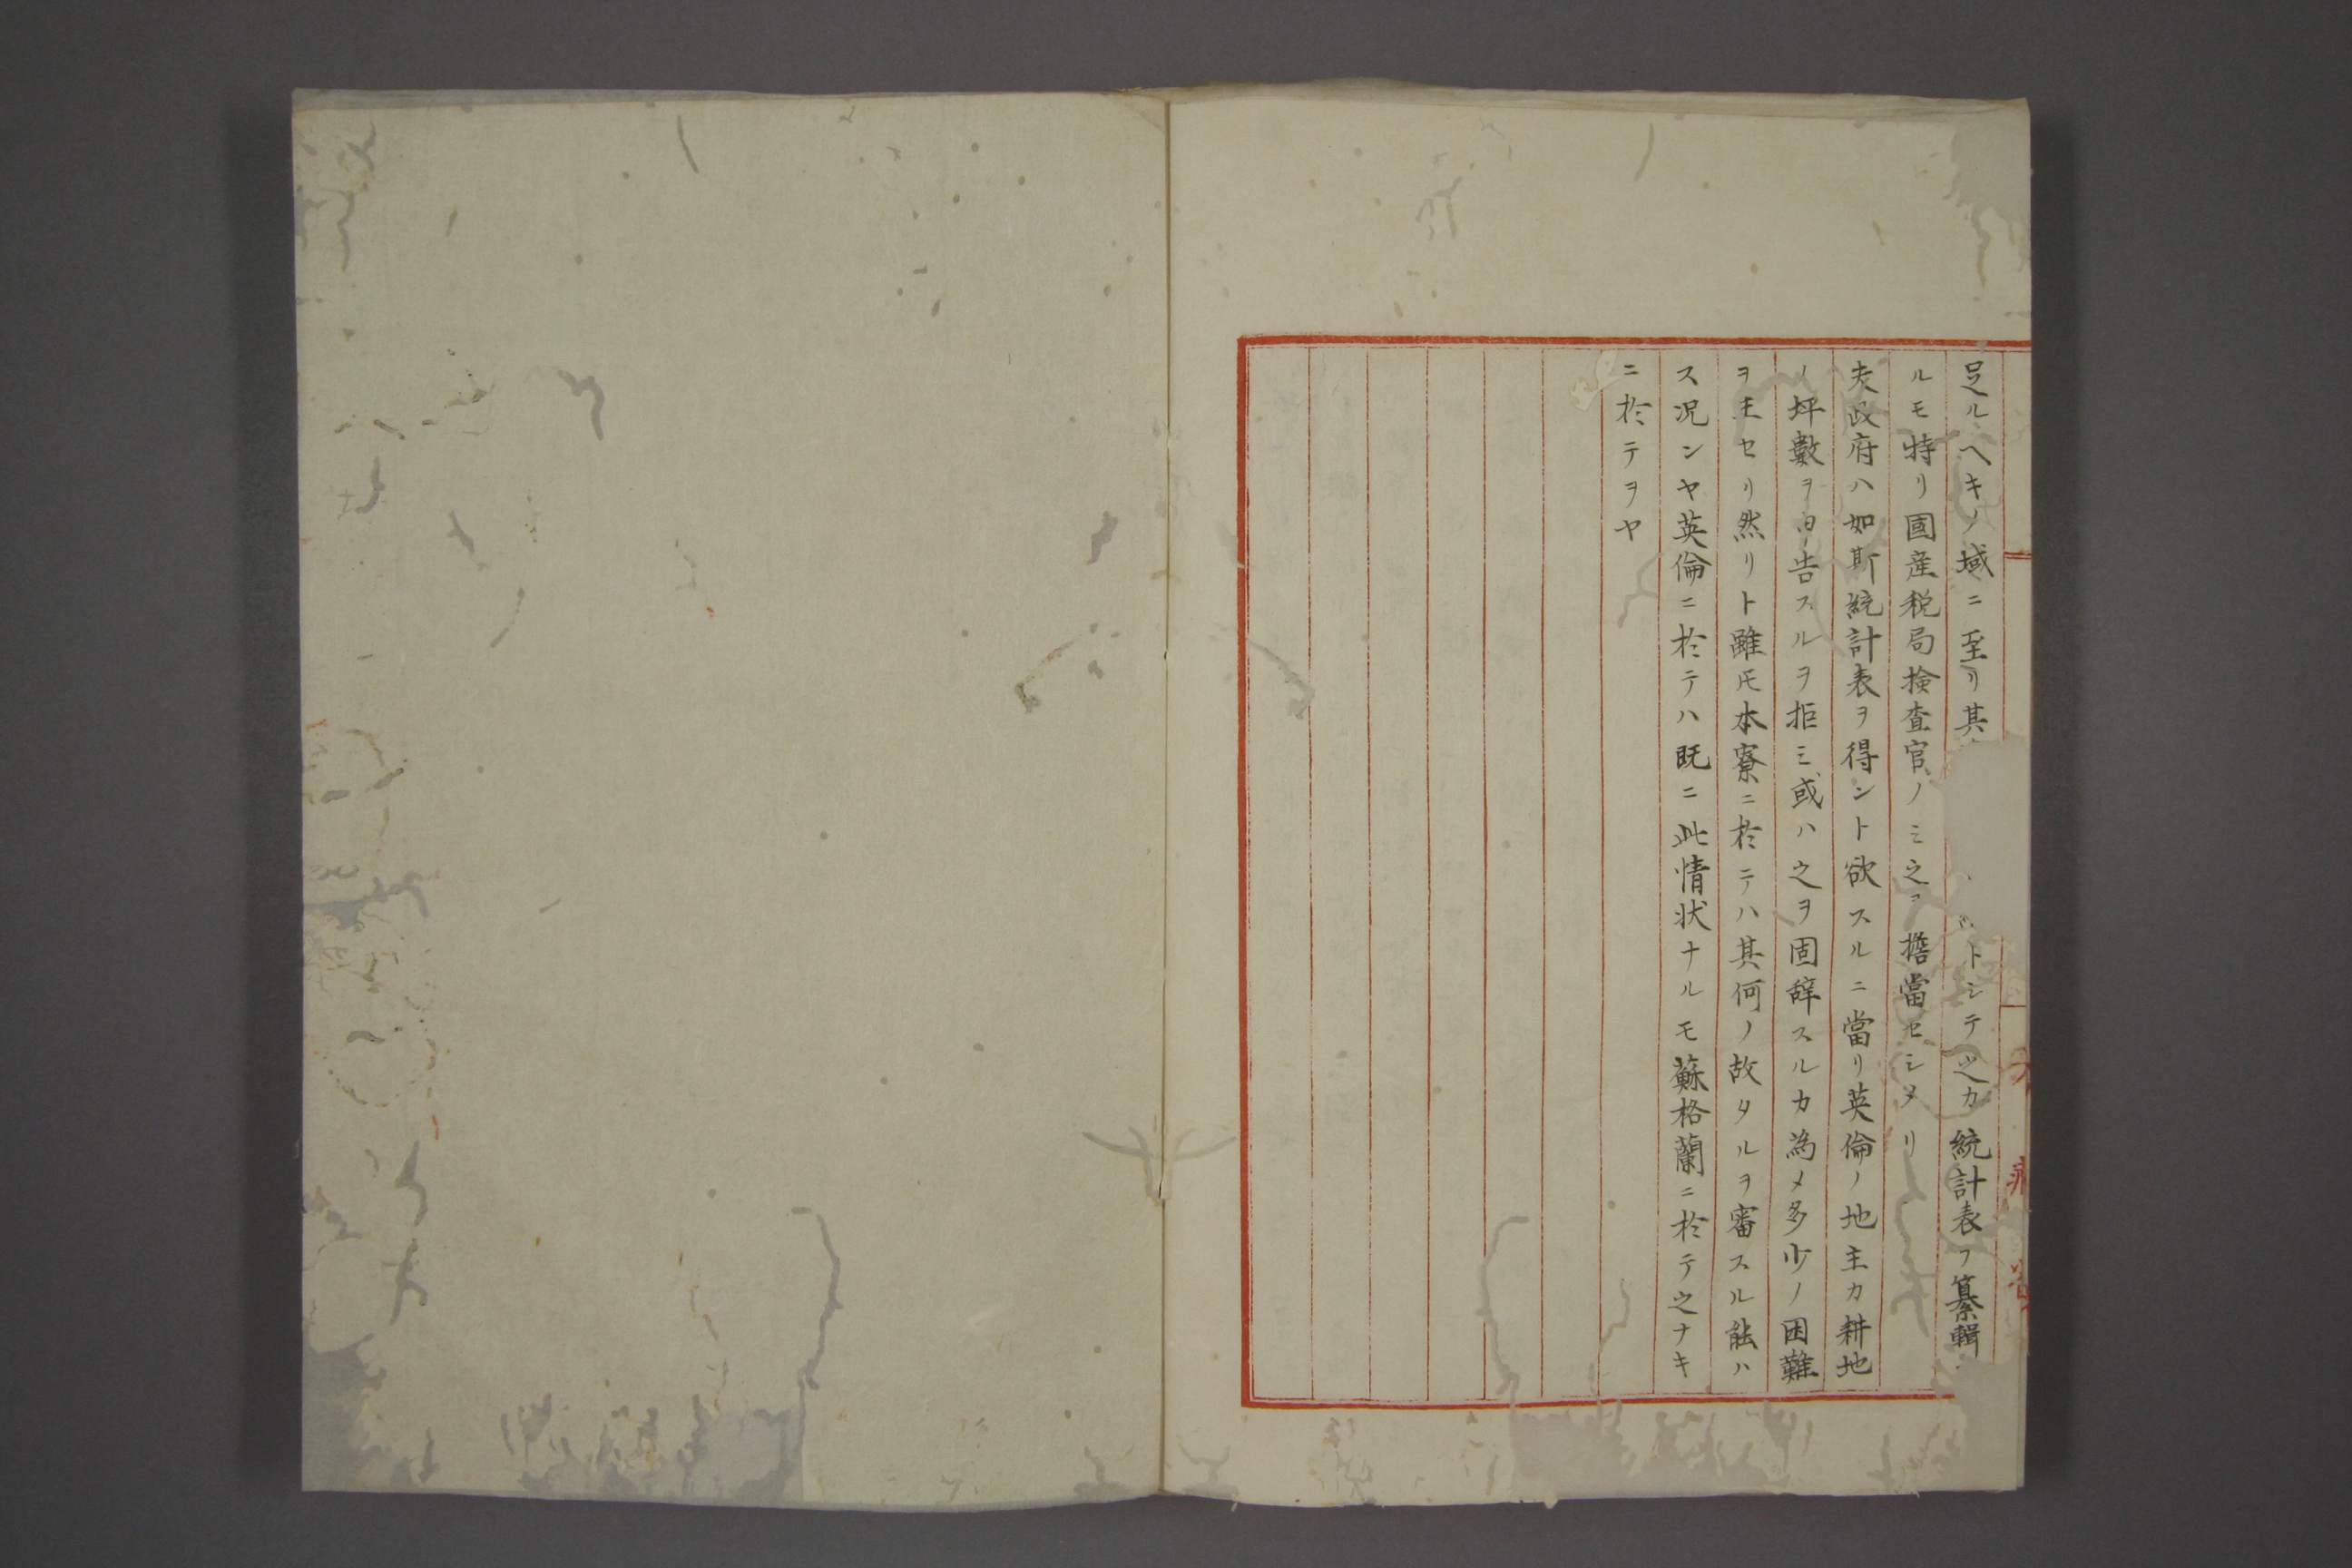 足ルヘキノ域ニ至リ其 トシテ之カ統計表ヲ纂輯
ルモ特リ國産税局検査官ノミ之ヲ擔當セシメリ
夫政府ハ如斯統計表ヲ得ント欲スルニ當リ英倫ノ地主カ耕地
ノ坪數ヲ申告スルヲ拒ミ或ハ之ヲ固辞スルカ為メ多少ノ困難
ヲ生セリ然リト雖モ本寮ニ於テハ其何ノ故タルヲ審スル能ハ
ス況ンヤ英倫ニ於テハ既ニ此情状ナルモ蘇格蘭ニ於テ之ナキ
ニ於テヲヤ